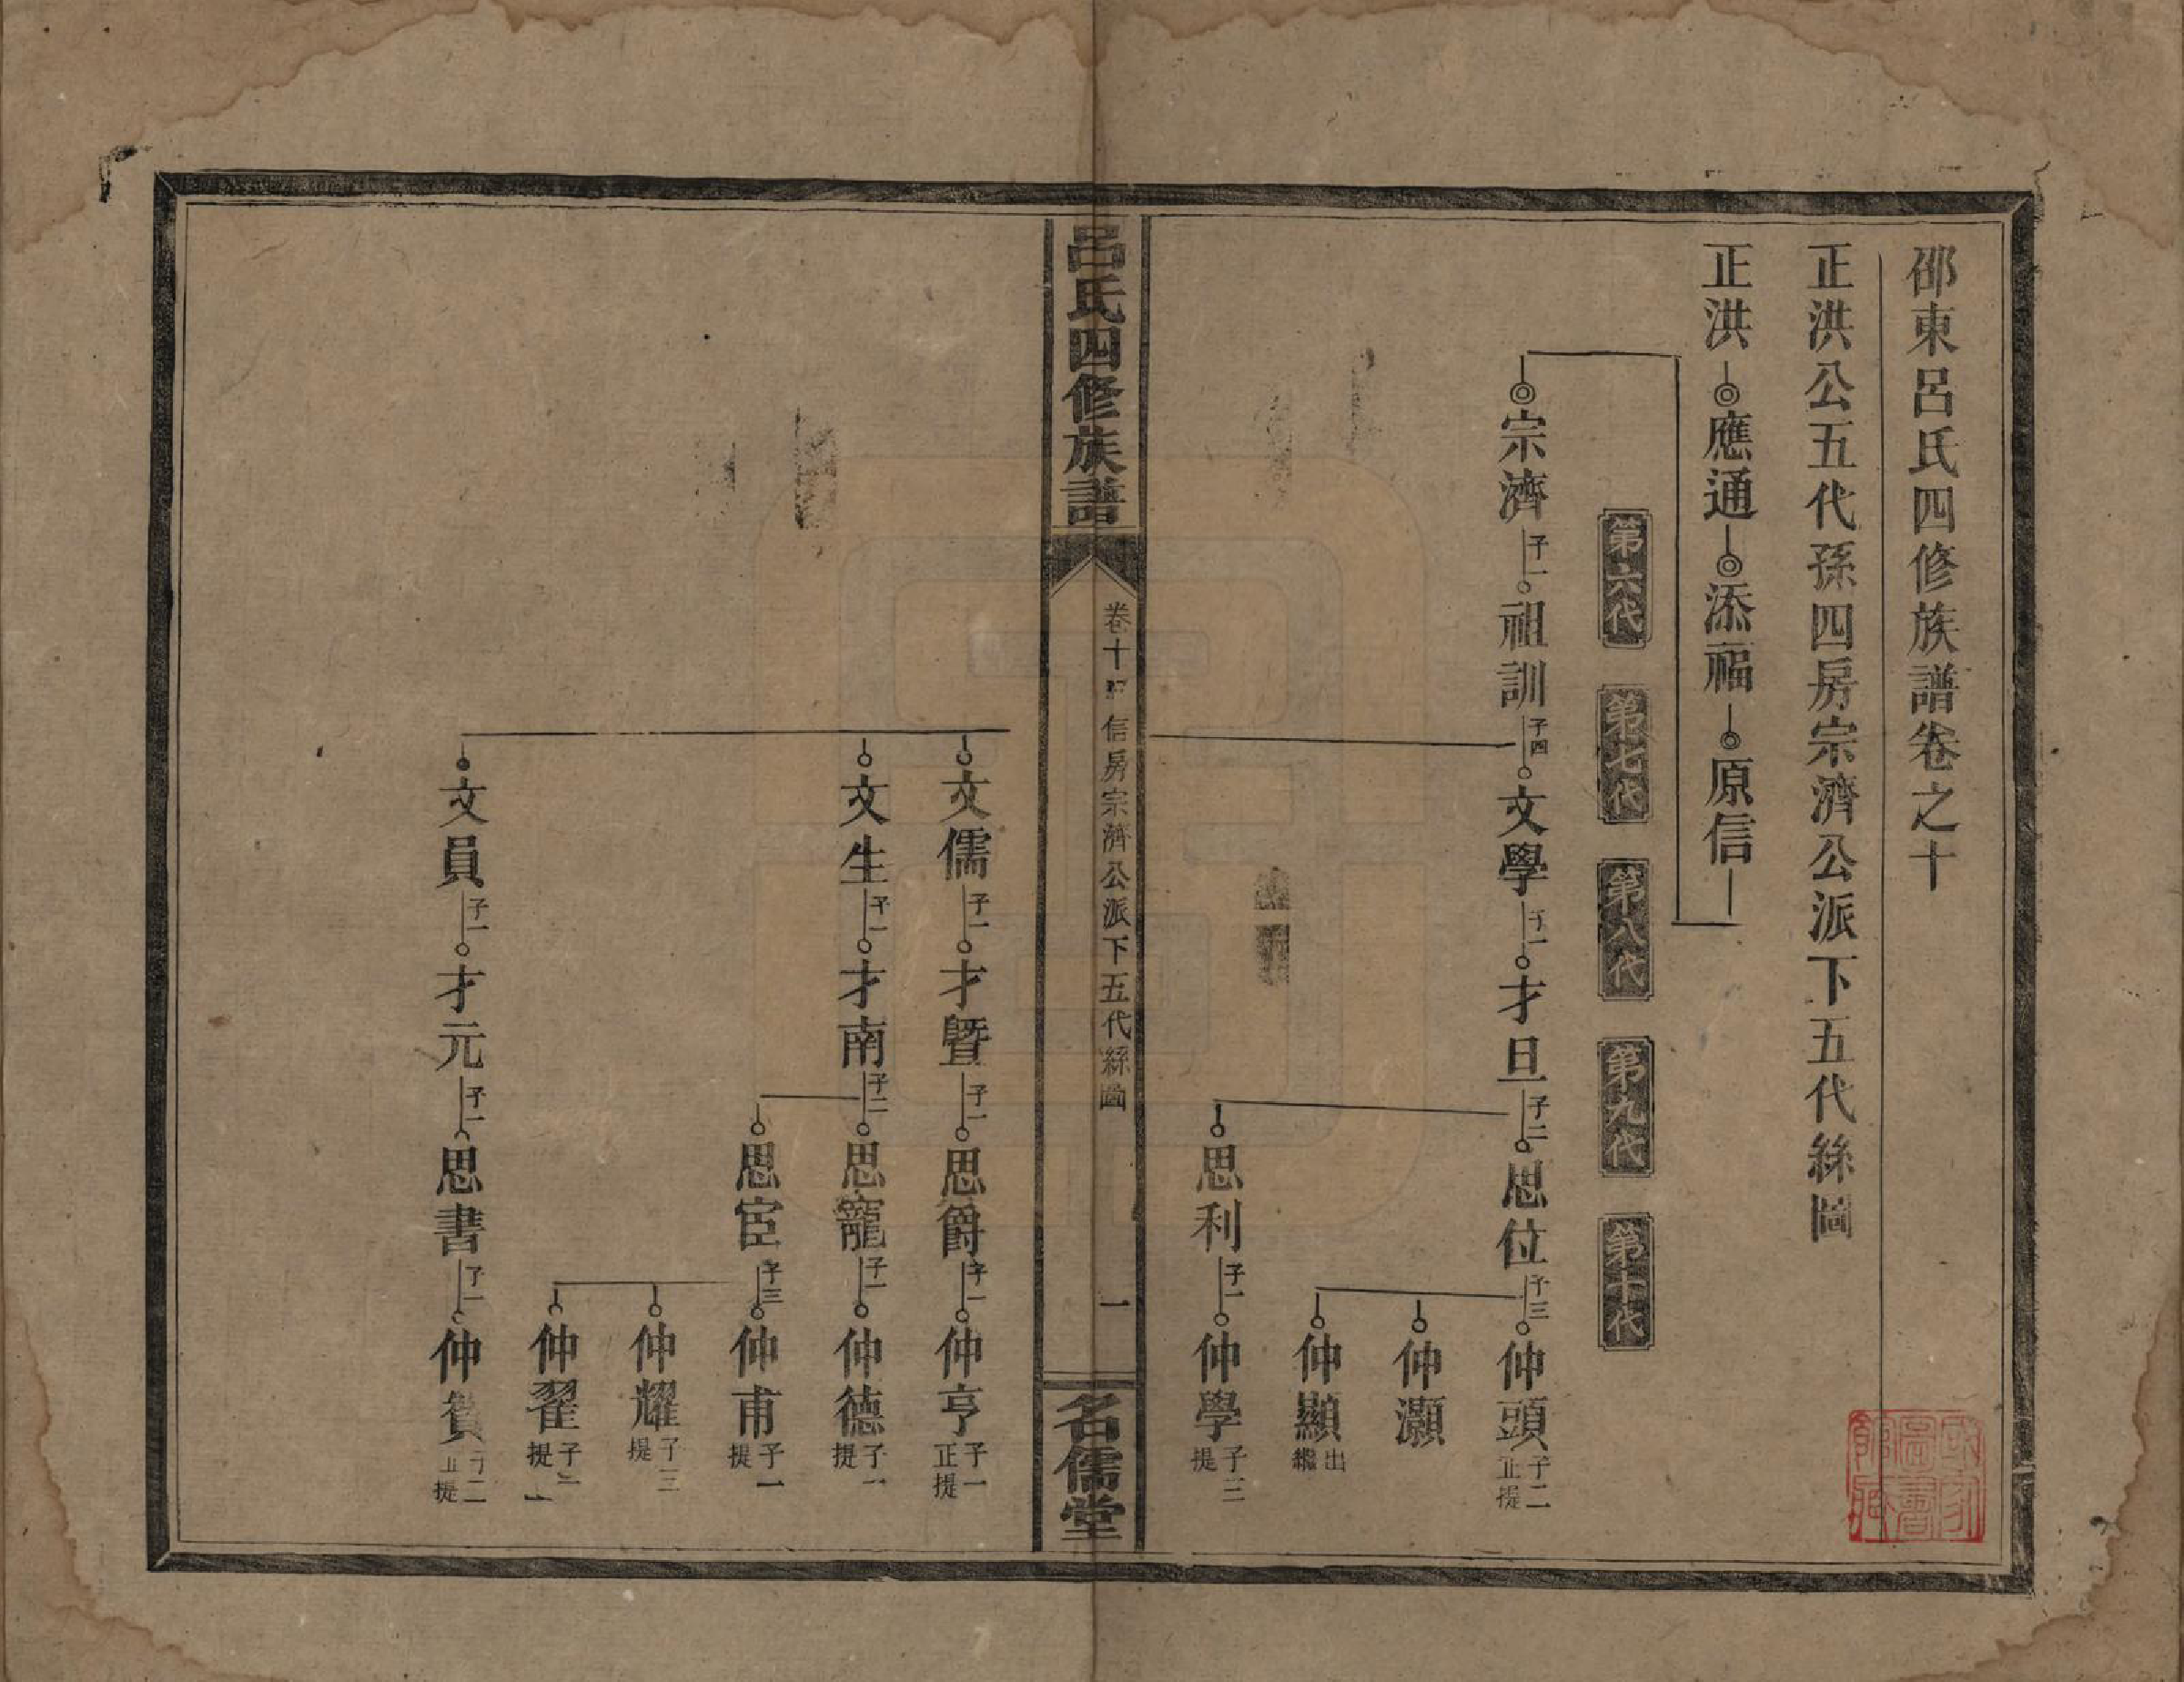 邵東呂氏四修族譜卷之十
正洪公五代孫四房宗濟公派下五代絲圖
正洪 應通 添福 原信
第六代 第七代 第八代 第九代 第十代
宗濟 子一 祖訓 子四 文學 子一 才旦 子二 思位 子三 仲頭 子二 正提
仲灝
仲顯 出繼
思利 子一 仲學 子三 提
呂氏四修族譜
卷十 信房宗濟公派下五代絲圖
一
名儒堂
文儒 子一 才暨 子一 思爵 子一 仲亨 子一 正提
文生 子一 才南 子二 思寵 子一 仲德 子一 提
思宦 子三 仲甫 子一 提
仲耀 子三 提
仲翟 子二 提
文員 子一 才元 子一 思書 子一 仲貧 子二 正提